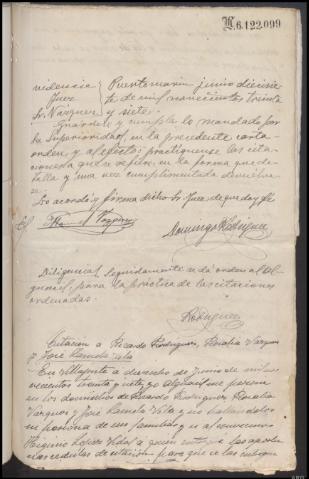 M.6.122.099
videncia } Puertomarin, junio diecisie
Juez te de mil novecientos treinta
Sr. Vázquez y siete.
Guárdese y cumpla lo mandado por
la Superioridad en la precedente carta
orden, y al efecto practíquense las cita
ciones que se piden en la forma que de
talla y una vez cumplimentada devuélva
se.
Lo acordó y firma dicho Sr. Juez de que doy fe
Domingo Rodríguez
Diligencia } Seguidamente se da orden al Al
guacil, para la práctica de las citaciones
ordenadas.
Rodríguez
Citación a Ricardo Rodríguez, Rosalia Vázquez
y José Ramela Vila
En Villajuste a de junio de mil no
vecientos treinta y siete, yo Alguacil me persone
en los domicilios de Ricardo Rodríguez, Rosalia
Vázquez y José Ramela Vila y no hallándolos
en persona de sus familias, y al convecino
Higinio López Vila a quien entregue las oportu
nas cédulas de citación para que se las entregue